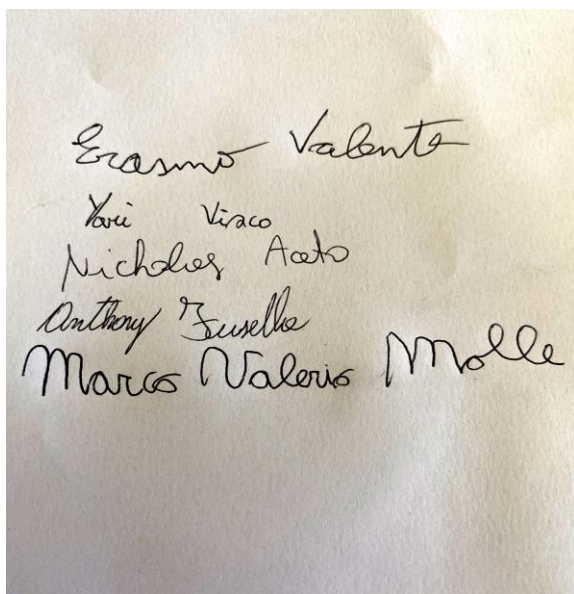 Erasmo Valente
Yari Visco
Nicholas Aceto
Anthony Fusella
Marco Valerio Molle